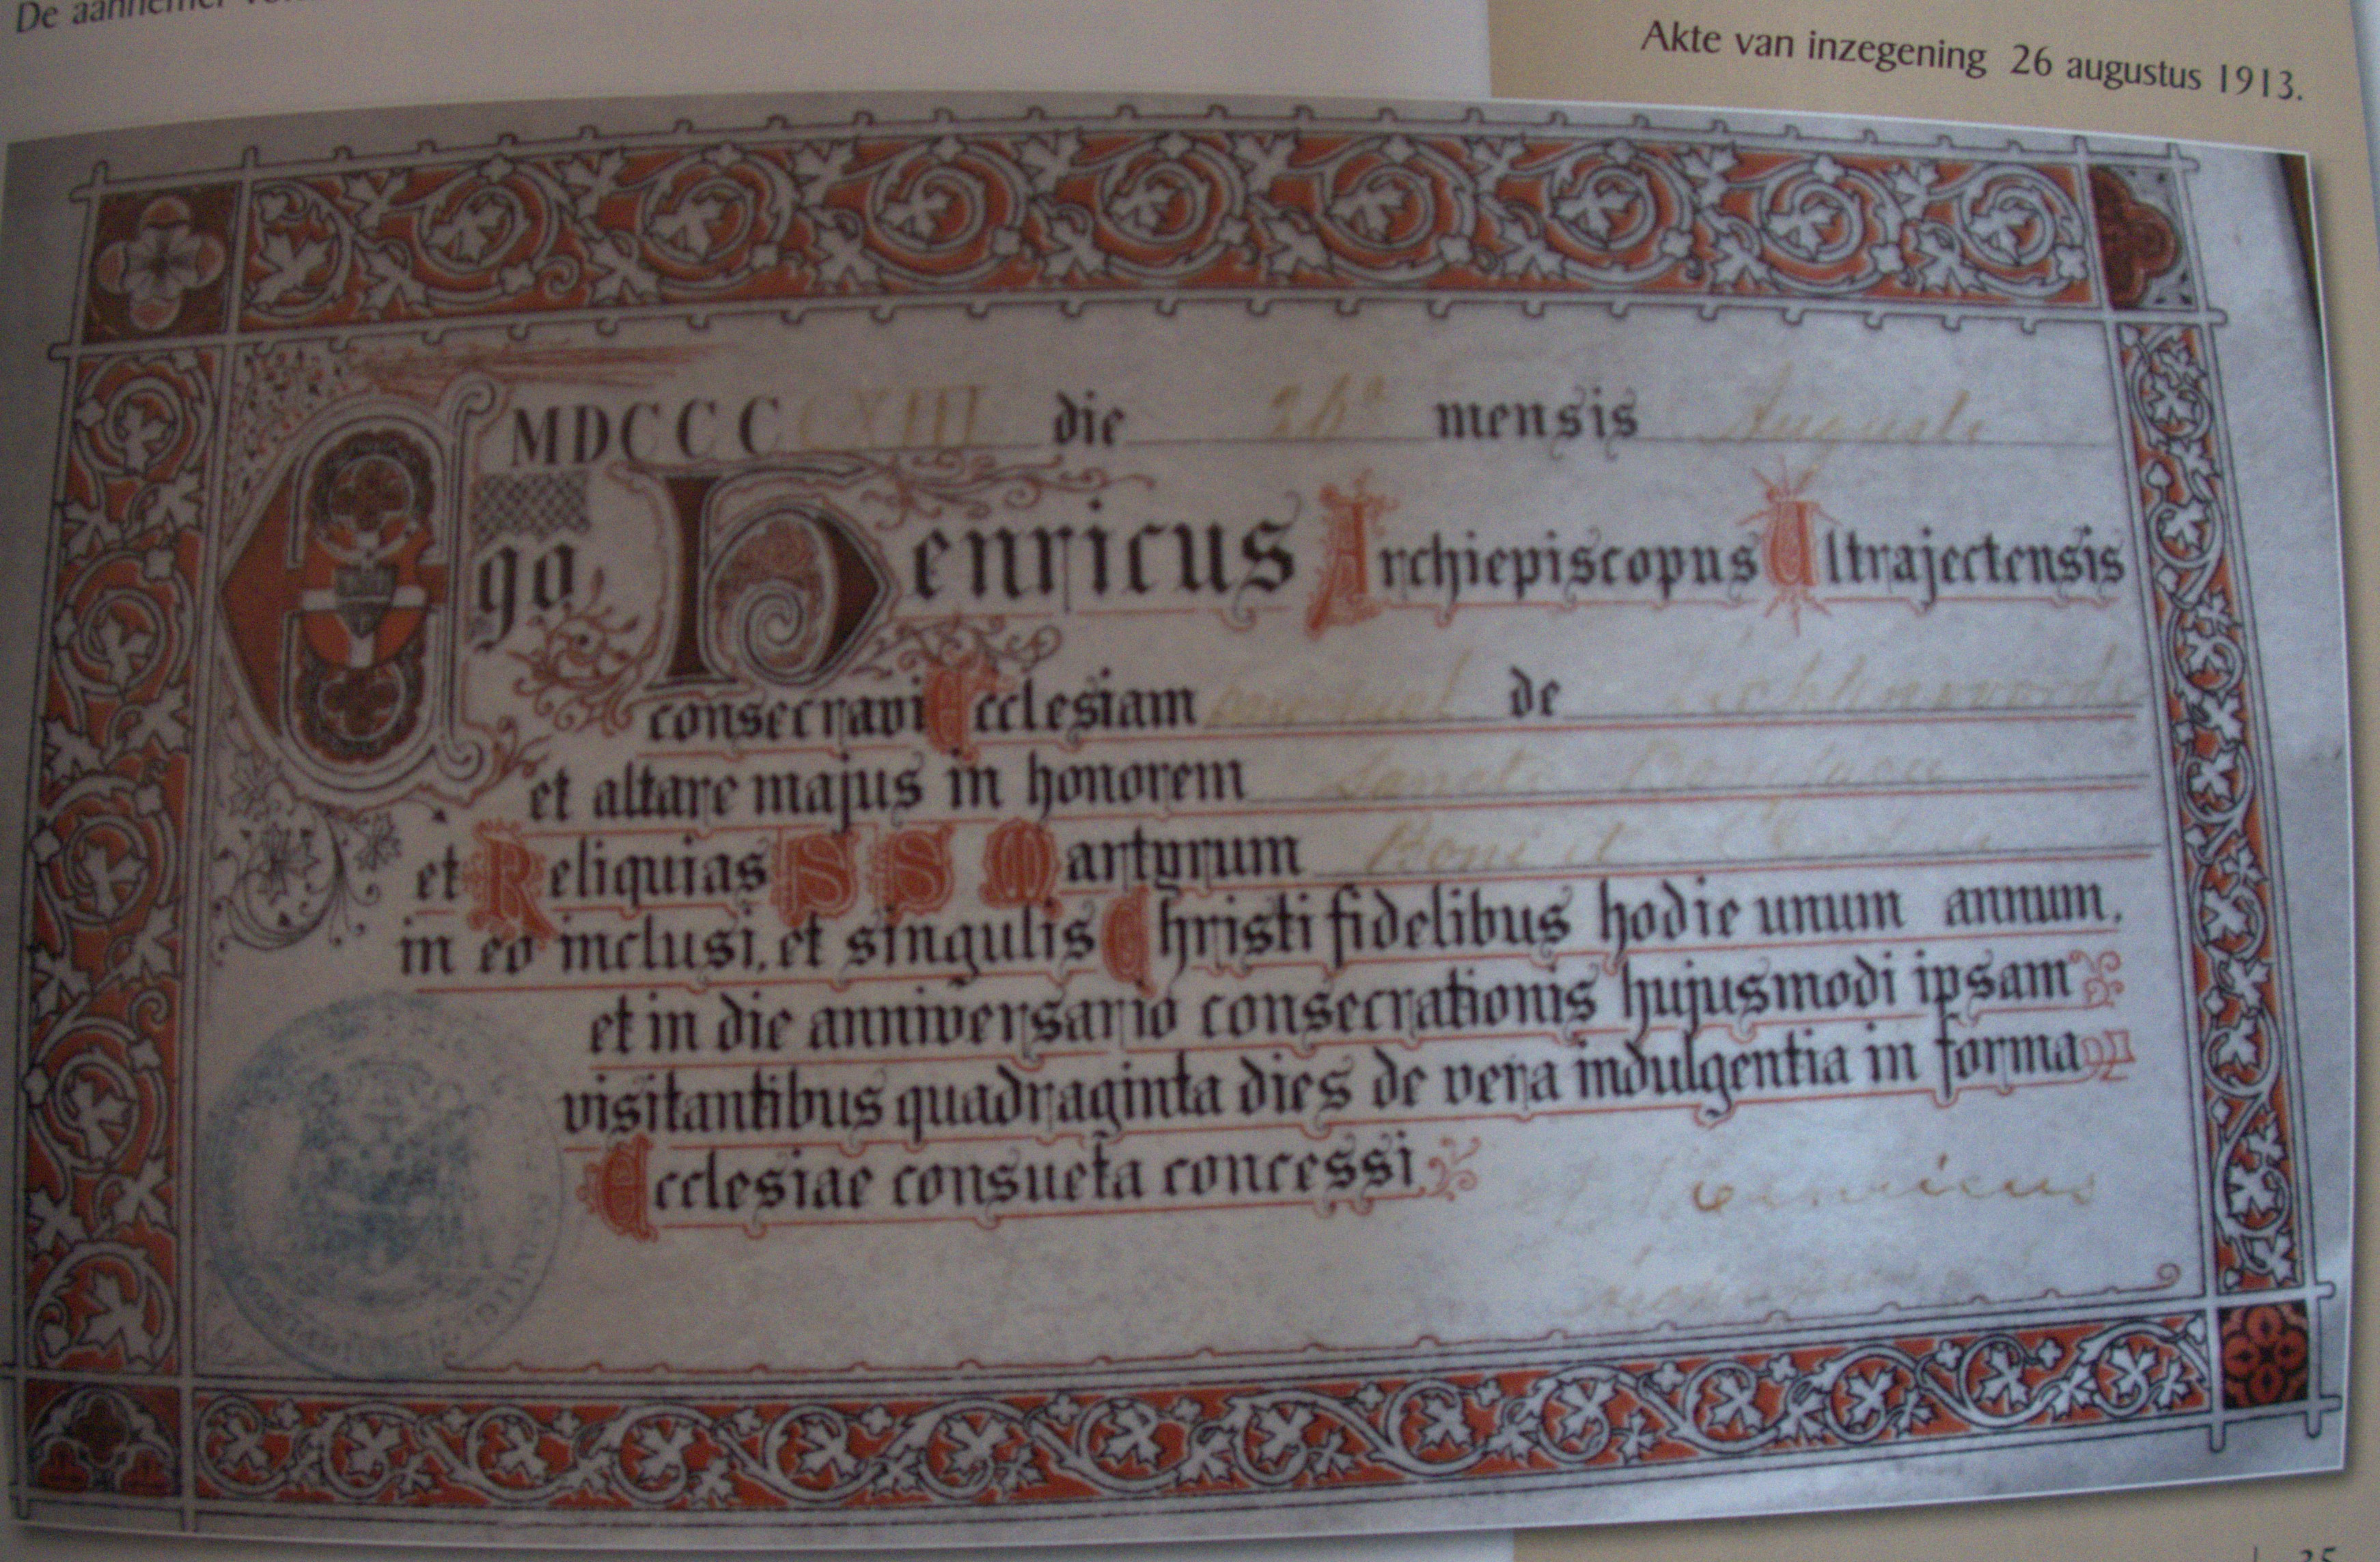 De aannemer
Akte van inzegening 26 augustus 1913.
MDCCCCXIII die 26a mensis Augusti
Ego Henricus Archiepiscopus Ultrajectensis
consecravi Ecclesiam de
et altare majus in honorem Sancti Bonifacii
et Reliquias SS Martyrum Boni et
in eo inclusi, et singulis Christi fidelibus hodie unum annum,
et in die anniversario consecrationis hujusmodi ipsam
visitantibus quadraginta dies de vera indulgentia in forma
Ecclesiae consueta concessi.
Henricus